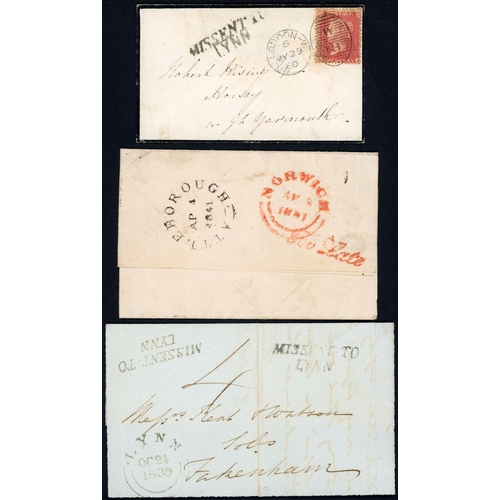 MISSENT TO
LYNN
LONDON-W
6
MY 29
60
W
B
Robert Rising
Horsey
Yarmouth
ATTLEBOROUGH
AP 4
1841
NORWICH
AP 4
1841
Too Late
MISSENT-TO
LYNN
MISSENT-TO
LYNN
4
Messrs Kent & Watson
Solrs
Fakenham
LYNN
OC 24
1839